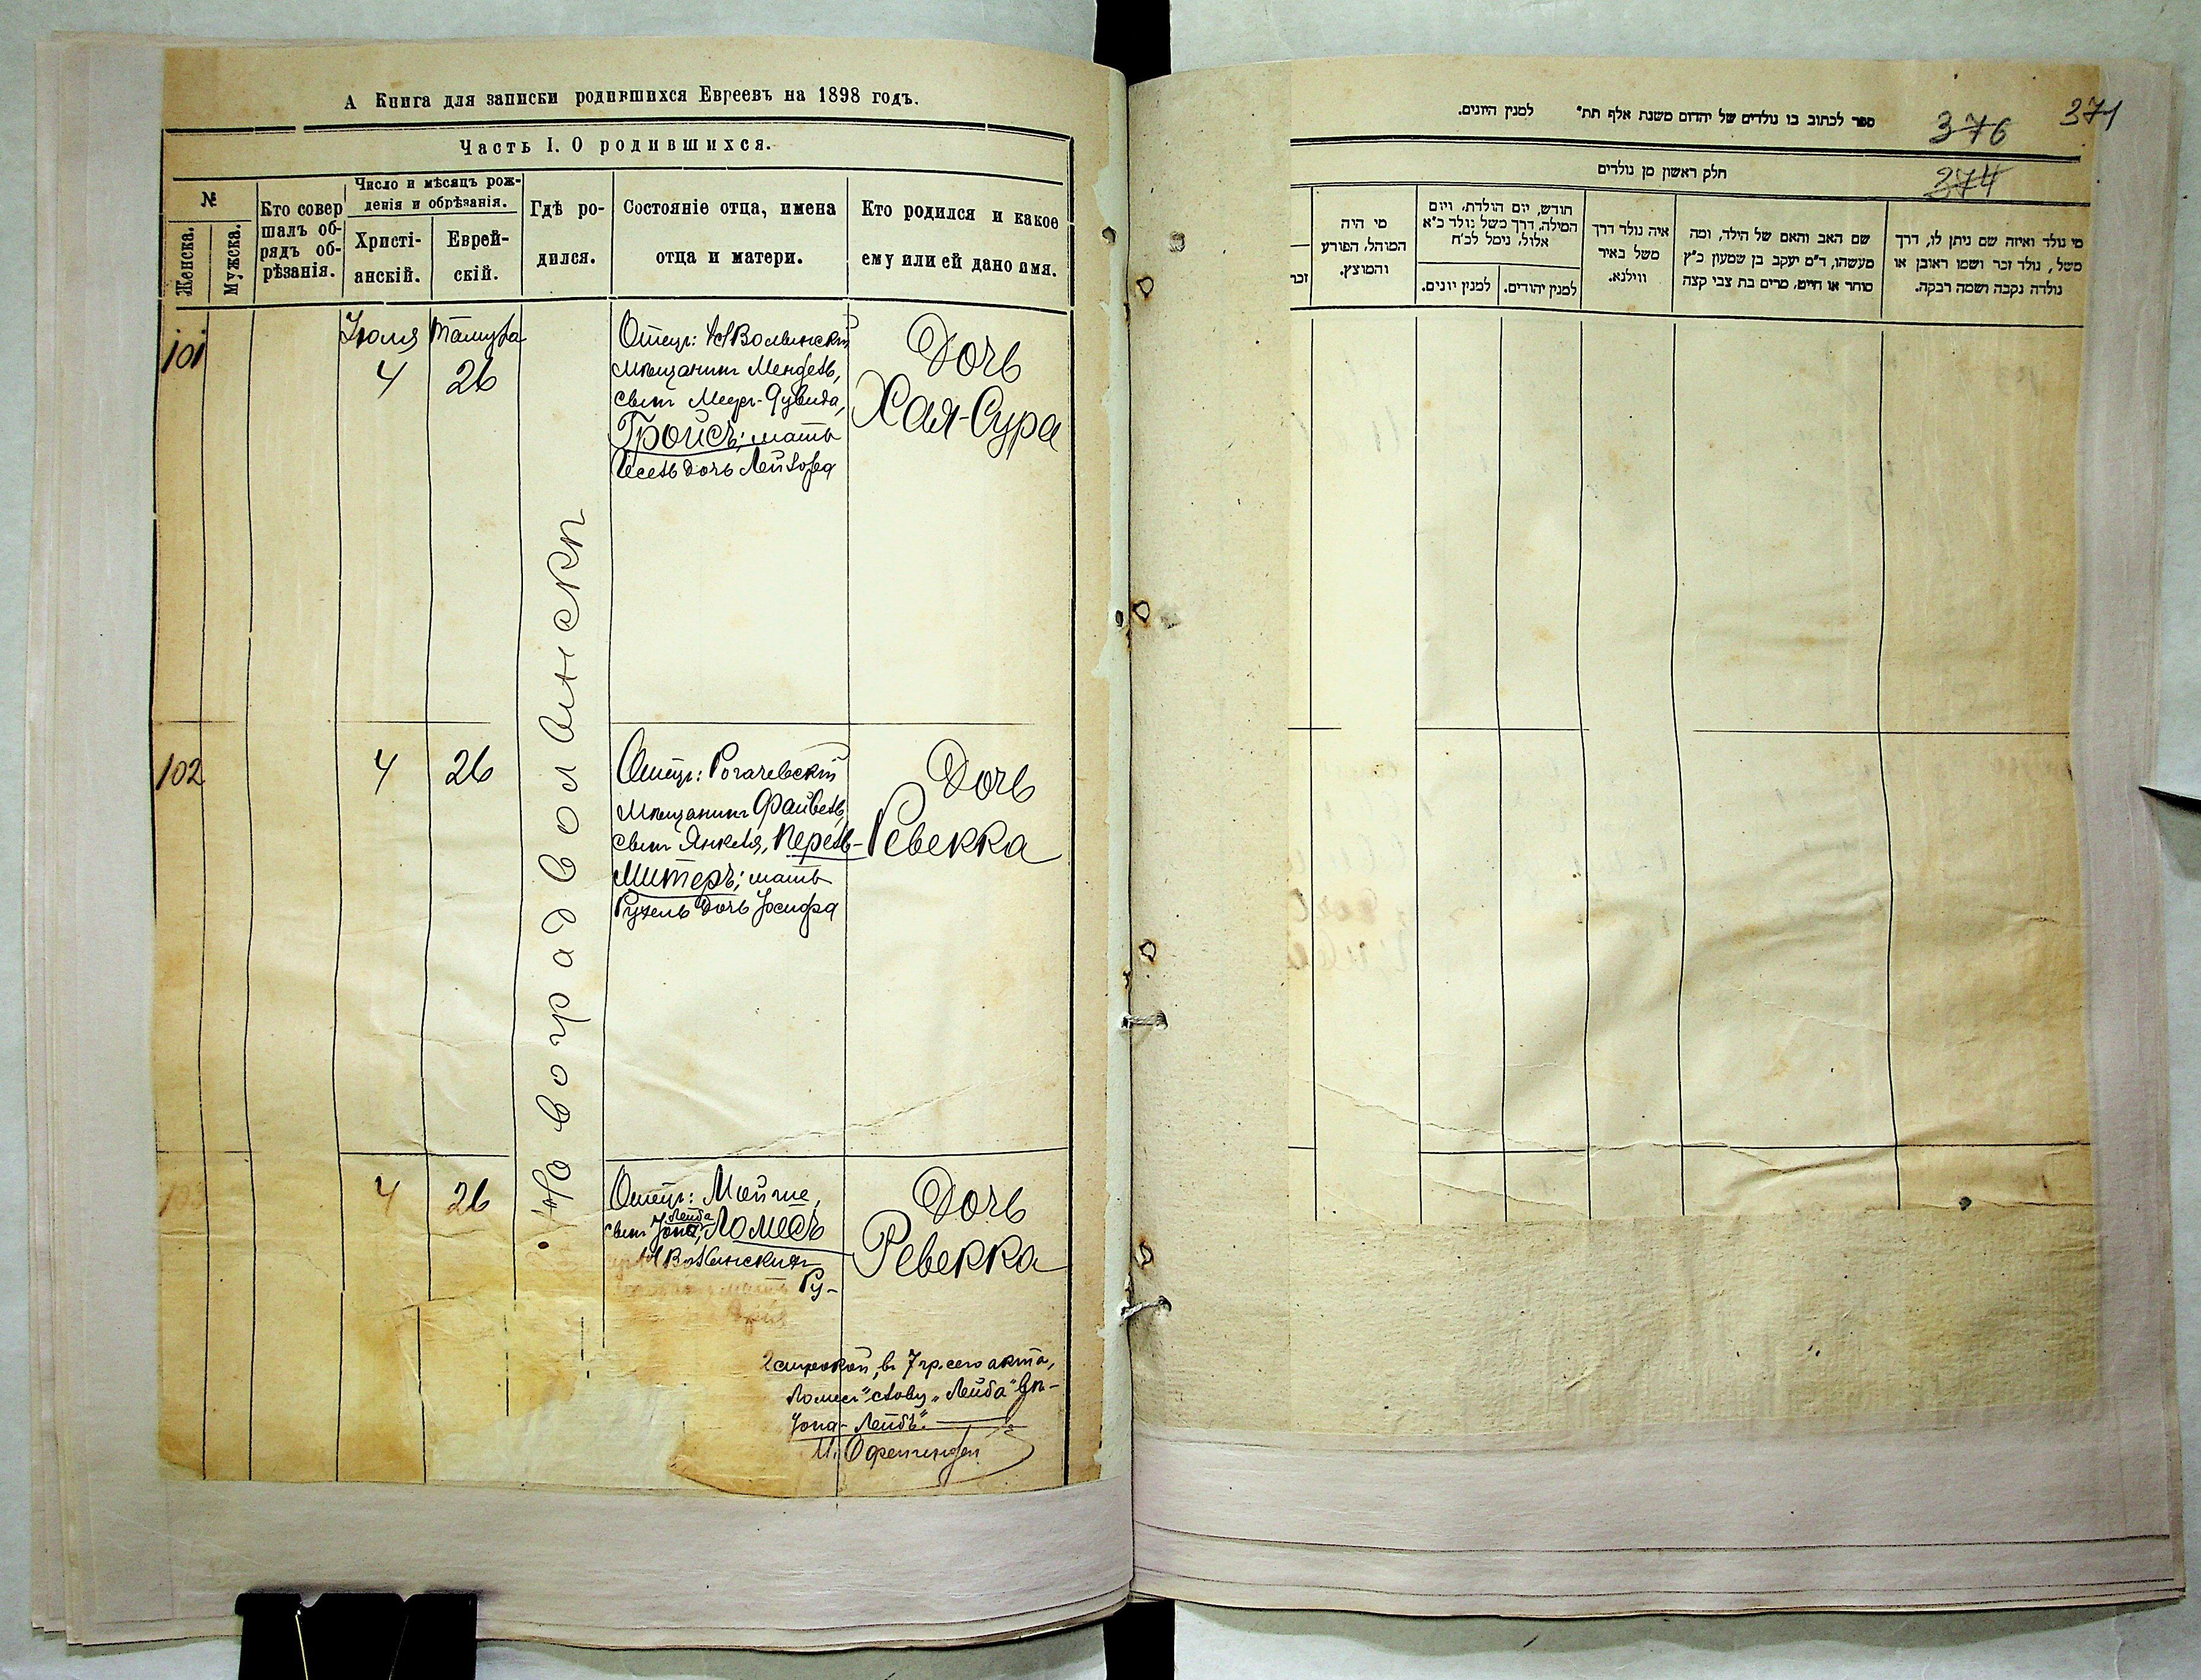 А Книга для записки родившихся Евреевъ на 1898 годъ.
Часть I. О родившихся.
№
Женска.
Мужска.
Кто совер
шалъ об-
рядъ об-
рѣзанія.
Число и мѣсяцъ рож-
денія и обрѣзанія.
Христі-
анскій.
Еврей-
скій.
Гдѣ ро-
дился.
Состояніе отца, имена
отца и матери.
Кто родился и какое
ему или ей дано имя.
101
Іюля
4
Тамуза
26
Новоградволынскъ
Отецъ: НВолынскій
мѣщанинъ Мендель,
сынъ Меер-Дувида,
Гройсъ; мать
Песель дочь Лейзора
Дочь
Хая-Сура
102
4
26
Отецъ: Рогачевскій
мѣщанинъ Файвель,
сынъ Янкеля, Перель-
Митеръ; мать
Рухель дочь Іосифа
Дочь
Ревекка
4
26
Отецъ: Мойше,
Лейба
сынъ Іона, Ломесъ
НВолынскій
мать Ру-
Дочь
Ревекка
2 строкой, въ 7 гр. сего акта,
Ломесъ" слову "Лейба"
Іона-Лейбъ".
ספר לכתוב בו נולדים של יהדום משנת אלף תת" למנין היונים.
376
371
374
חלק ראשון מן נולדים
מי נולד ואיזה שם ניתן לו, דרך
משל, נולד זכר ושמו ראובן או
נולדה נקבה ושמה רבקה.
שם האב והאם של הילד, ומה
מעשהו, ד"מ יעקב בן שמעון כ"ץ
סוחר או חייט, מרים בת צבי קצה
איה נולד דרך
משל באיר
ווילנא.
חודש, יום הולדת, ויום
המילה, דרך משל נולד כ"א
אלול, נימל לכ"ח
למנין יהודים.
למנין יונים.
מי היה
המוהל, הפורע
והמוצץ.
זכר